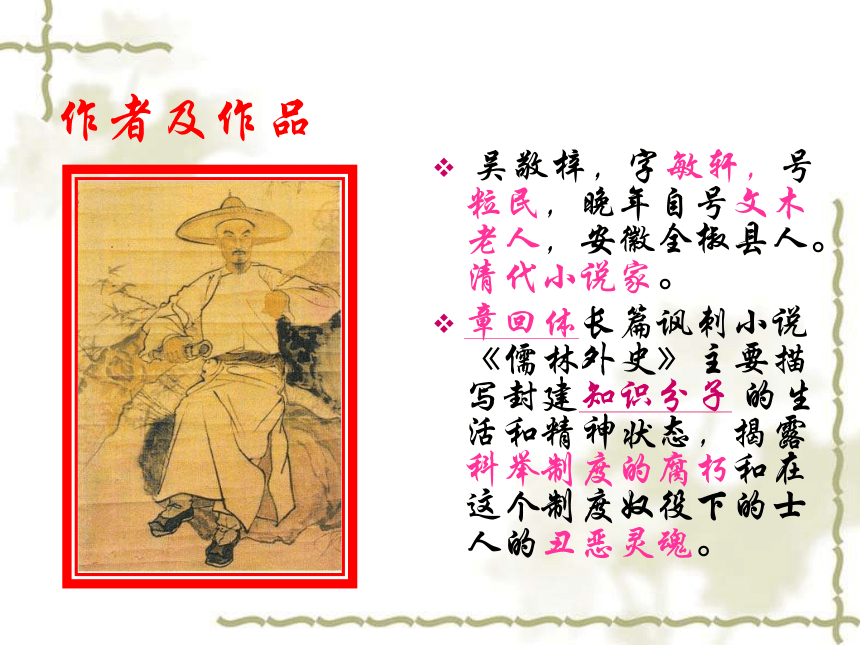 作者及作品
吴敬梓，字敏轩，号
粒民，晚年自号文木
老人，安徽全椒县人。
清代小说家。
章回体长篇讽刺小说
《儒林外史》主要描
写封建知识分子 的生
活和精神状态，揭露
科举制度的腐朽和在
这个制度奴役下的士
人的丑恶灵魂。